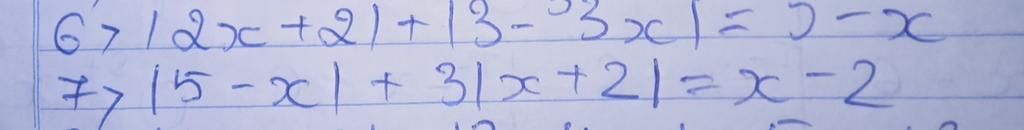 6> |2x + 2| + |3 - 3x| = 5 - x
7> |5 - x| + 3|x + 2| = x - 2